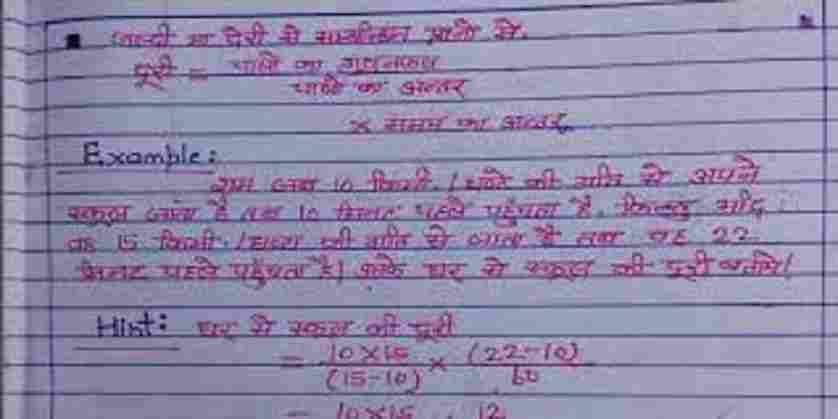 जल्दी या देरी से सम्बन्धित प्रश्नों में.
दूरी = चालों का गुणनफल
चालों का अन्तर
× समय का अन्तर.
Example:
राम जब 10 किमी. / घंटे की गति से अपने
स्कूल जाता है तब 10 मिनट पहले पहुँचता है, किन्तु यदि
वह 15 किमी. / घण्टा की गति से जाता है तब वह 22
मिनट पहले पहुँचता है। उसके घर से स्कूल की दूरी बताये।
Hint: घर से स्कूल की दूरी
= 10×15 × (22-10)
(15-10) 60
= 10×15 . 12